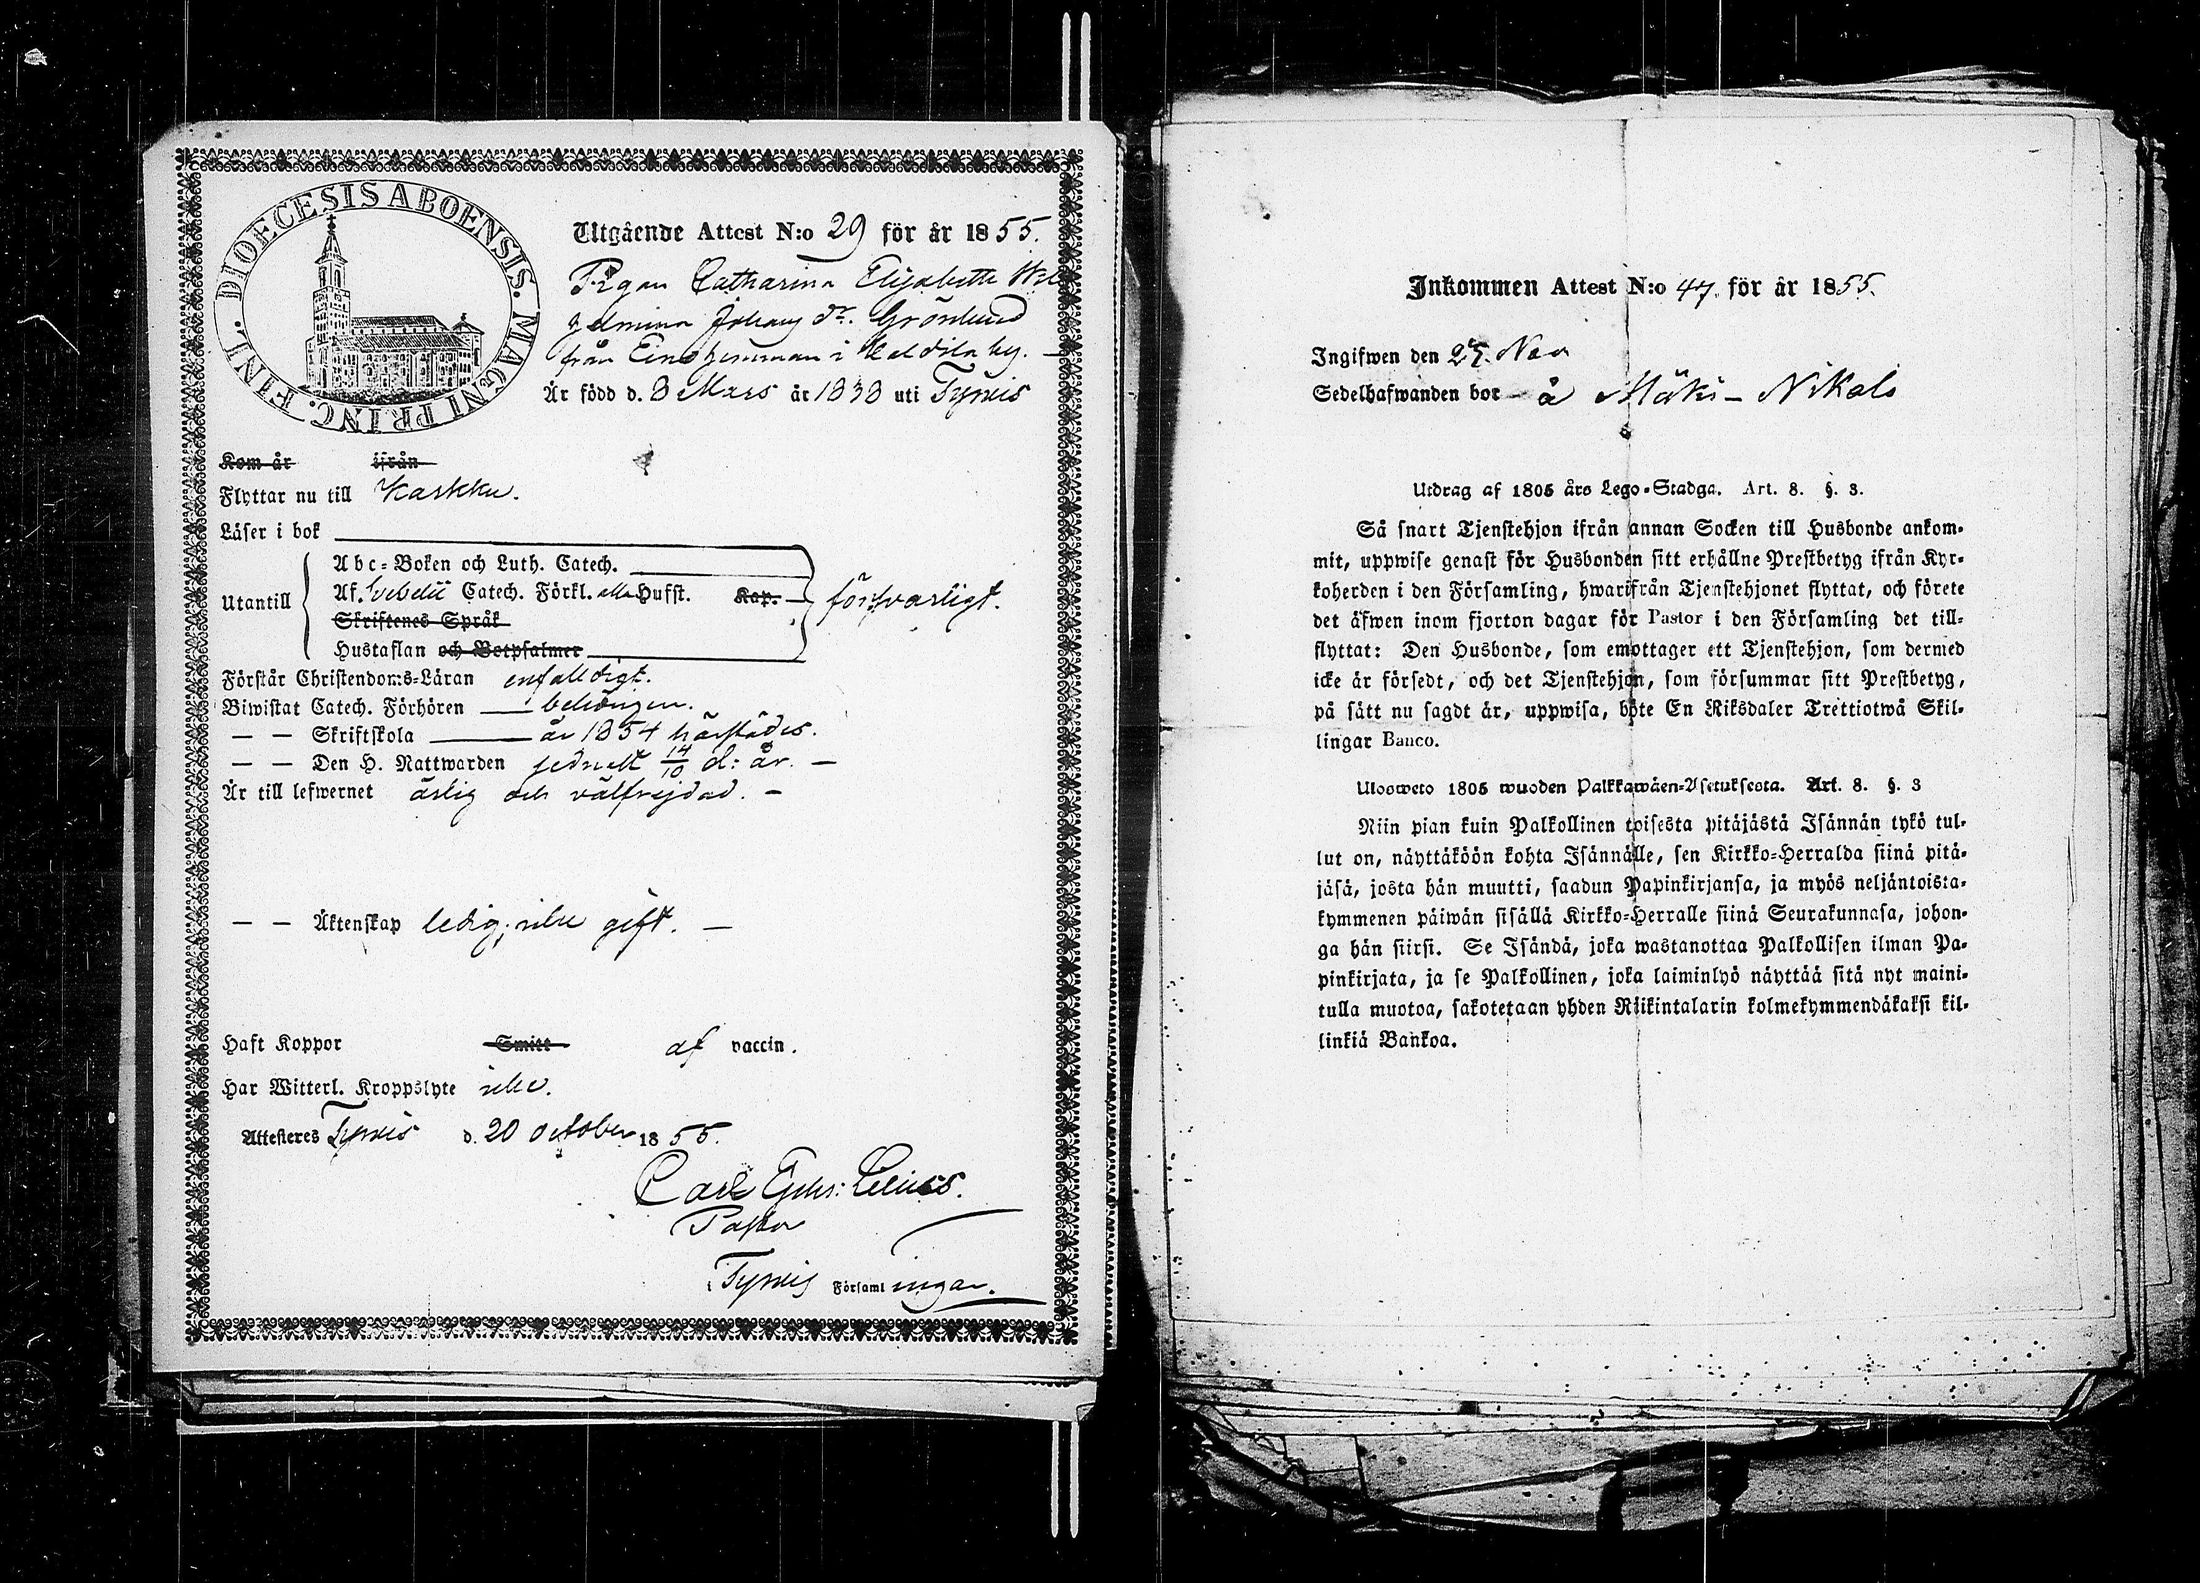 DIOECESIS ABOENSIS. MAGNI PRINC. FINL.
Utgående Attest N:o 29 för år 1855.
Pigan Catharina Elisabetta Wil
helmina Johans dr. Grönlund
från Einohemman i by.
Är född d. 8 Mars år 1838 uti Tyrvis
Kom år ifrån
Flyttar nu till Karkku.
Läser i bok
Utantill
Abc-Boken och Luth. Catech.
Af Svebelii Catech. Förkl. alla Hufst. Kap.
försvarligt.
Skriftenes Språk
Hustaflan och Botpsalmer
Förstår Christendoms-Läran enfaldigt.
Biwistat Catech. Förhören behörigen.
— — Skriftskola år 1854 härstädes.
— — Den H. Nattwarden sednast 14/10 d: år. —
Är till lefwernet ärlig och välfrejdad. —
— — Äktenskap ledig; icke gift. —
Haft Koppor Smitt af vaccin.
Har Witterl. Kroppslyte icke.
Attesteres Tyrvis d. 20 october 1855.
Carl
Pastor
i Tyrvis Församlingar.
Inkommen Attest N:o 47. för år 1855.
Ingifwen den Nov
Sedelhafwanden bor å Mäki-Nikals
Utdrag af 1805 års Lego-Stadga. Art. 8. §. 3.
Så snart Tjenstehjon ifrån annan Socken till Husbonde ankom-
mit, uppwise genast för Husbonden sitt erhållne Prestbetyg ifrån Kyr-
koherden i den Församling, hwarifrån Tjenstehjonet flyttat, och förete
det äfwen inom fjorton dagar för Pastor i den Församling det till-
flyttat: Den Husbonde, som emottager ett Tjenstehjon, som dermed
icke är försedt, och det Tjenstehjon, som försummar sitt Prestbetyg,
på sätt nu sagdt är, uppwisa, böte En Riksdaler Trettiotwå Skil-
lingar Banco.
Ulosweto 1805 wuoden Palkkawäen-Asetuksesta. Art. 8. §. 3
Niin pian kuin Palkollinen toisesta pitäjästä Isännän tykö tul-
lut on, näyttäköön kohta Isännälle, sen Kirkko-Herralda siinä pitä-
jäsä, josta hän muutti, saadun Papinkirjansa, ja myös neljäntoista-
kymmenen päiwän sisällä Kirkko-Herralle siinä Seurakunnasa, johon-
ga hän siirsi. Se Isändä, joka wastanottaa Palkollisen ilman Pa-
pinkirjata, ja se Palkollinen, joka laiminlyö näyttää sitä nyt maini-
tulla muotoa, sakotetaan yhden Riikintalarin kolmekymmendäkaksi kil-
linkiä Bankoa.